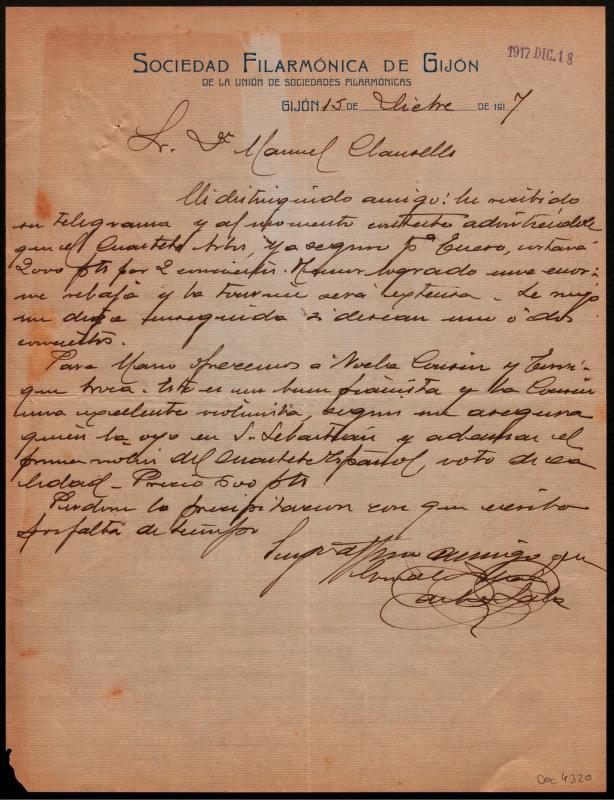 SOCIEDAD FILARMÓNICA DE GIJÓN
1917 DIC. 18
DE LA UNIÓN DE SOCIEDADES FILARMÓNICAS
GIJÓN 15 DE Dicbre DE 1917
Sr. Dn Manuel Clausells
Mi distinguido amigo: he recibido
su telegrama y al momento contesto advirtiéndole
que el Cuarteto ya seguro pa Enero, costará
2000 pts por 2 conciertos. Hemos logrado una enor-
me rebaja y la tournée será extensa. Le ruego
me diga enseguida si desean uno ó dos
conciertos.
Para Marzo ofrecemos á Noela Cousin y
que toca. Este es un buen pianista y la Cousin
una excelente violinista, según me asegura
quien la oyó en S. Sebastián y además el
primer violín del Cuarteto Español, voto de ca-
lidad. Precio 600 pts
Perdone la precipitación con que escribo
por falta de tiempo
Suyo afmo amigo
Doc 4320